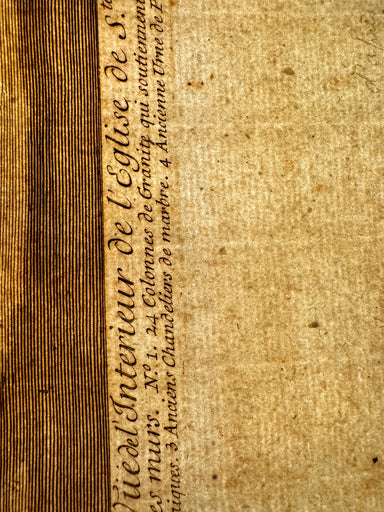 Vüe de l'Interieur de l'Eglise de S.te
es murs. N.º 1. 24 Colonnes de Granite qui soutiennen
tiques. 3 Anciens Chandeliers de marbre. 4 Ancienne Urne de P